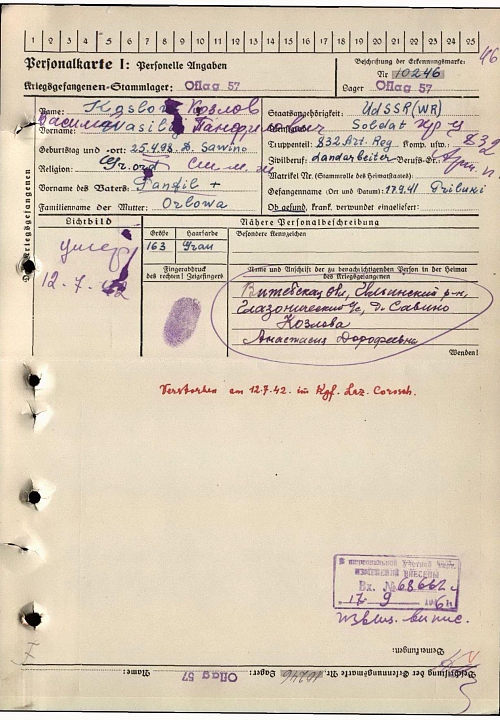 1 2 3 4 5 6 7 8 9 10 11 12 13 14 15 16 17 18 19 20 21 22 23 24 25
Personalkarte I: Personelle Angaben
Beschriftung der Erkennungsmarke:
Nr 10246
Kriegsgefangenen-Stammlager: Oflag 57
Lager Oflag 57
Name: Kaslow Козлов
Staatsangehörigkeit: UdSSR (WR)
Vorname: Wasil
Dienstgrad: Soldat
Truppenteil: 832 Art. Reg Komp. usw.
Geburtstag und -ort: 25.4.98 D. Sawino
Zivilberuf: Landarbeiter Berufs-Gr.
Religion: Gr. ord
Matrikel Nr. (Stammrolle des Heimatstaates):
Vorname des Vaters: Panfil +
Gefangennahme (Ort und Datum): 17.9.41 Priluki
Familienname der Mutter: Orlowa
Ob gesund, krank, verwundet eingeliefert:
Des Kriegsgefangenen
Lichtbild
Nähere Personalbeschreibung
Größe Haarfarbe Besondere Kennzeichen
163 Grau
умер
12.7.42
Fingerabdruck
des rechten! Zeigefingers
Name und Anschrift der zu benachrichtigenden Person in der Heimat
des Kriegsgefangenen
Витебская обл,
д. Савино
Козлова
Анастасия Дорофеевна
Wenden!
Verstorben am 12.7.42. im Kgf. Laz. Corosch.
Вх. № 68662
17 9
Bemerkungen:
Name: Oflag 57 Lager: 10246 Beschriftung der Erkennungsmarke Nr.